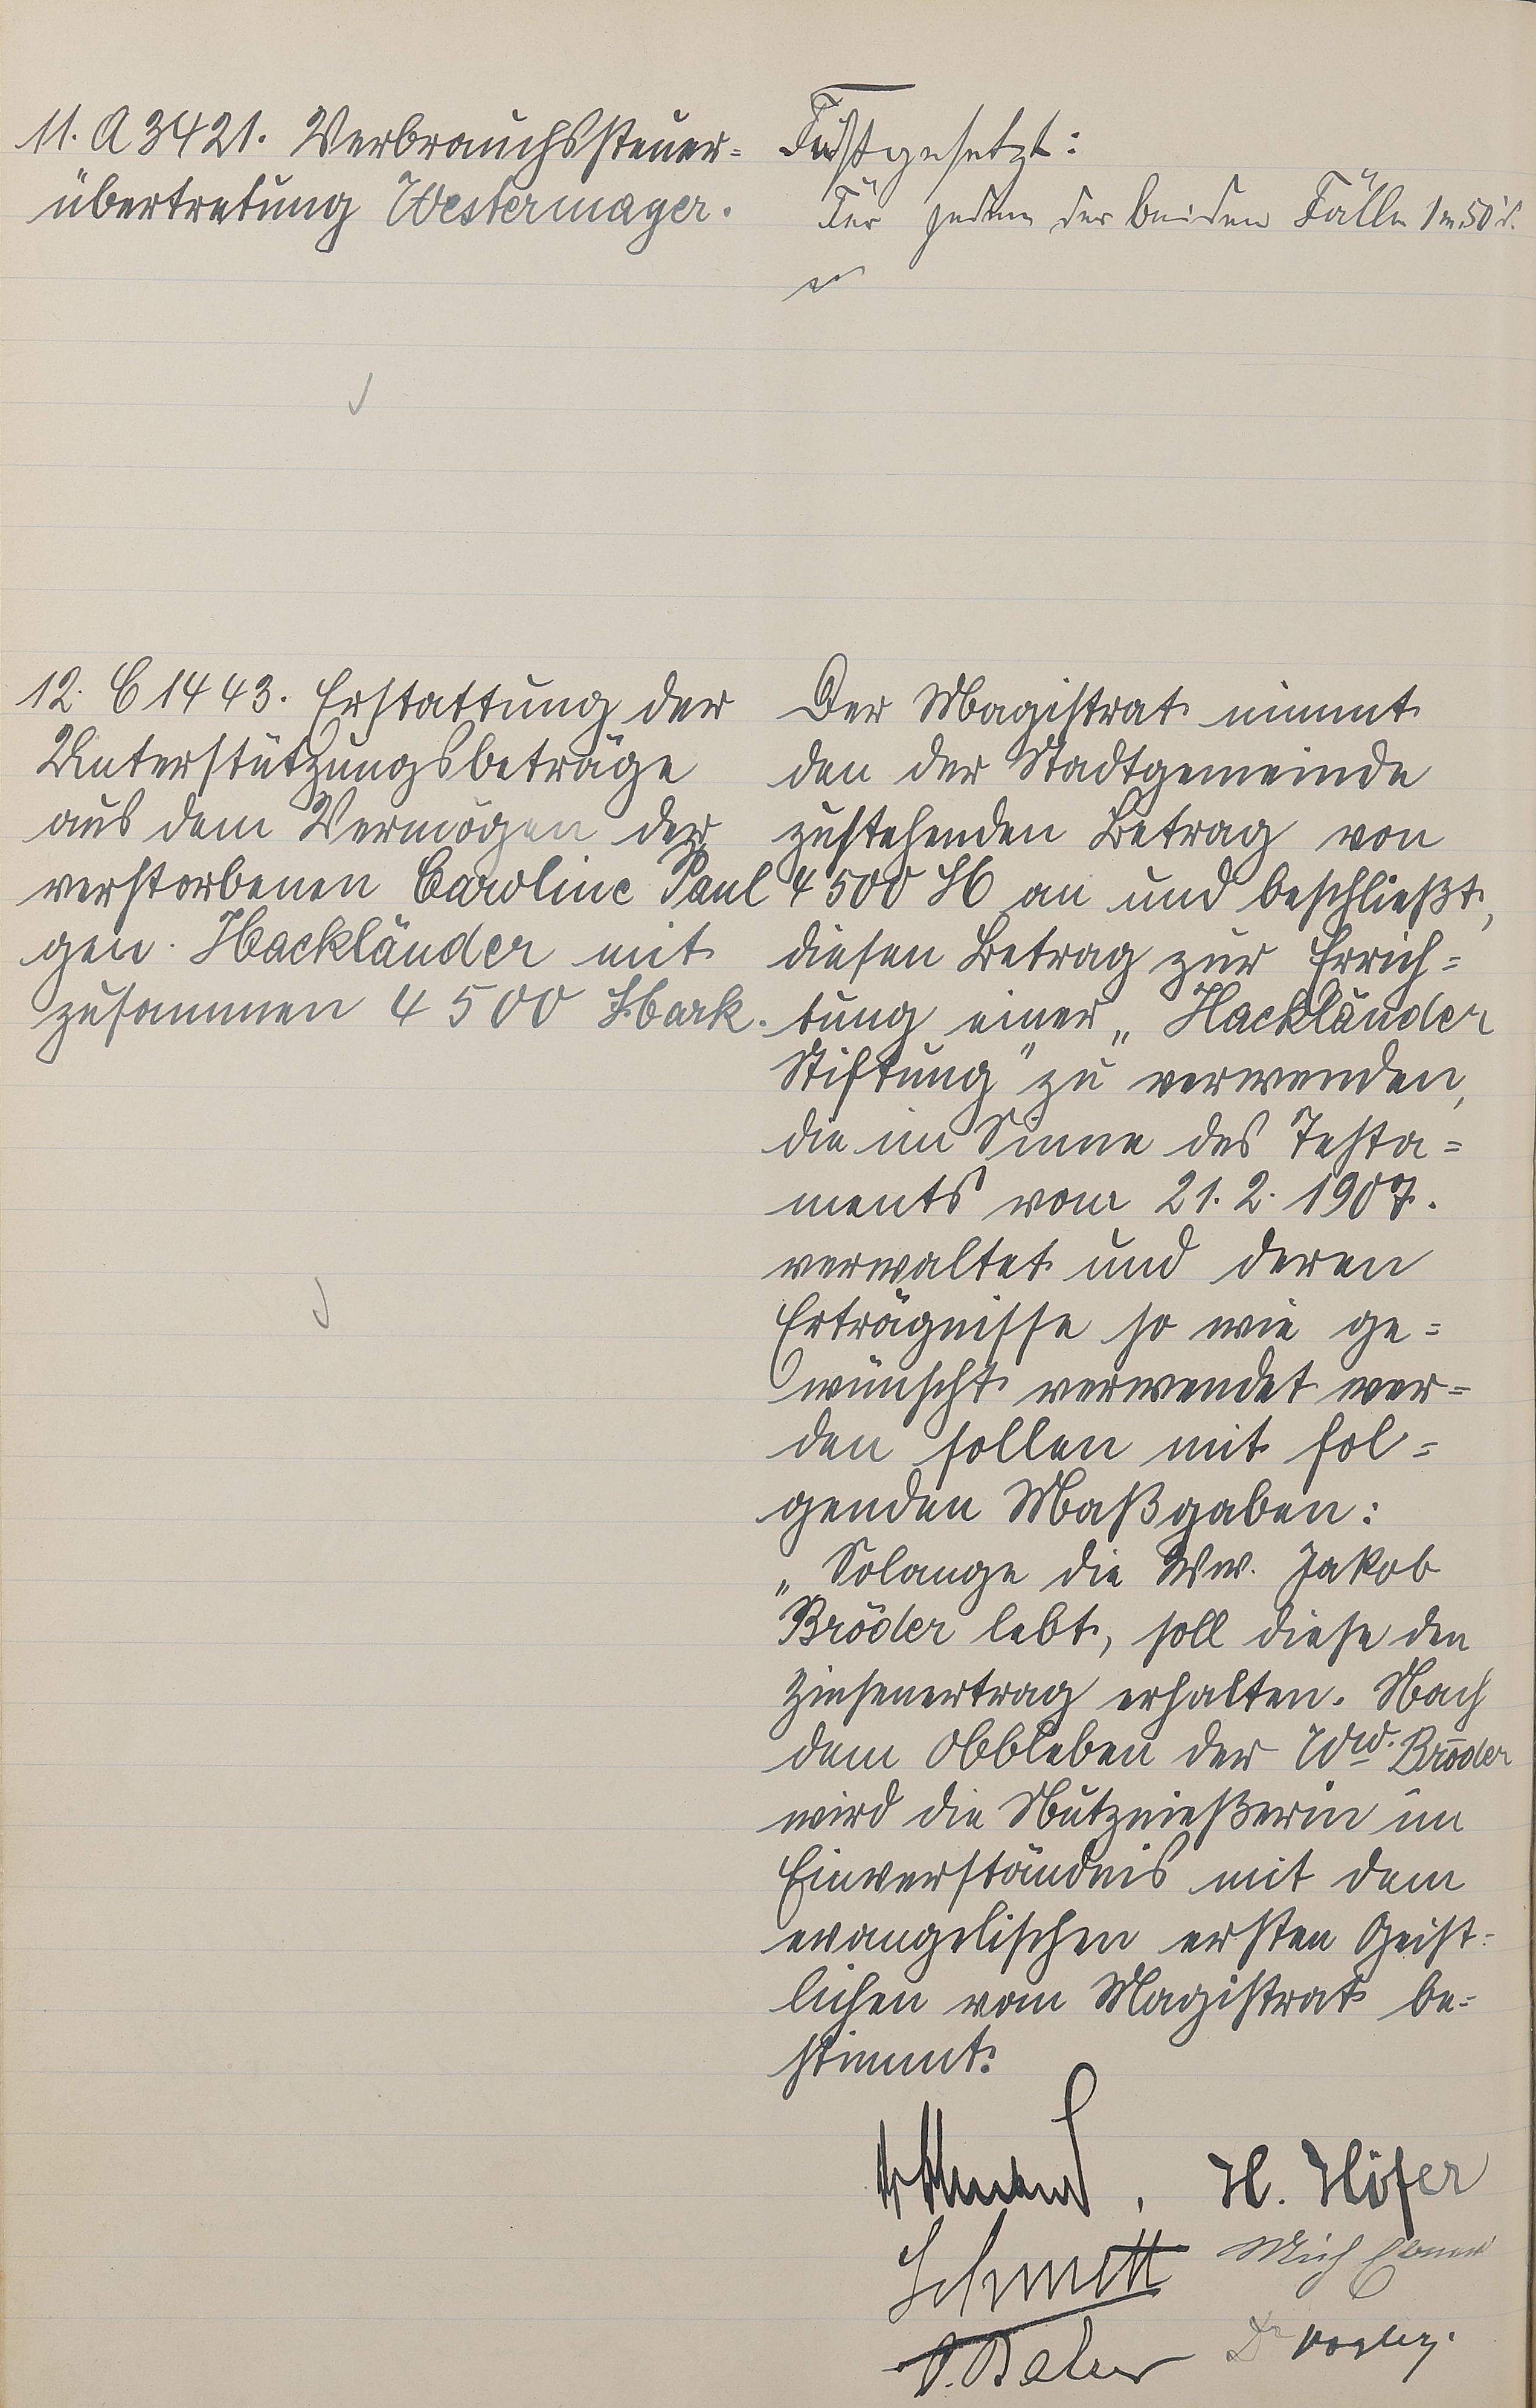 11. A 3421. Verbrauchssteuer=
übertretung Westermayer.
Festgesetzt:
Für jeden der beiden Fälle 1 M 50 d.
12. C 1443. Erstattung der
Unterstützungsbeträge
aus dem Vermögen der
verstorbenen Caroline Paul
gen. Hackländer mit
zusammen 4500 Mark.
Der Magistrat nimmt
den der Stadtgemeinde
zustehenden Betrag von
4500 M an und beschließt,
diesen Betrag zur Errich=
tung einer „Hackländer
Stiftung" zu verwenden,
die im Sinne des Testa=
ments vom 21. 2. 1907.
verwaltet und deren
Erträgnisse so wie ge=
wünscht verwendet wer=
den sollen mit fol=
genden Maßgaben:
„Solange die Ww. Jakob
Bröder lebt, soll diese den
Zinsenertrag erhalten. Nach
dem Abbleben der Ww. Bröder
wird die Nutznießerin im
Einverständnis mit dem
evangelischen ersten Geist=
lichen vom Magistrat be=
stimmt.
H. Höfer
Schmitt
Dr Vogler.